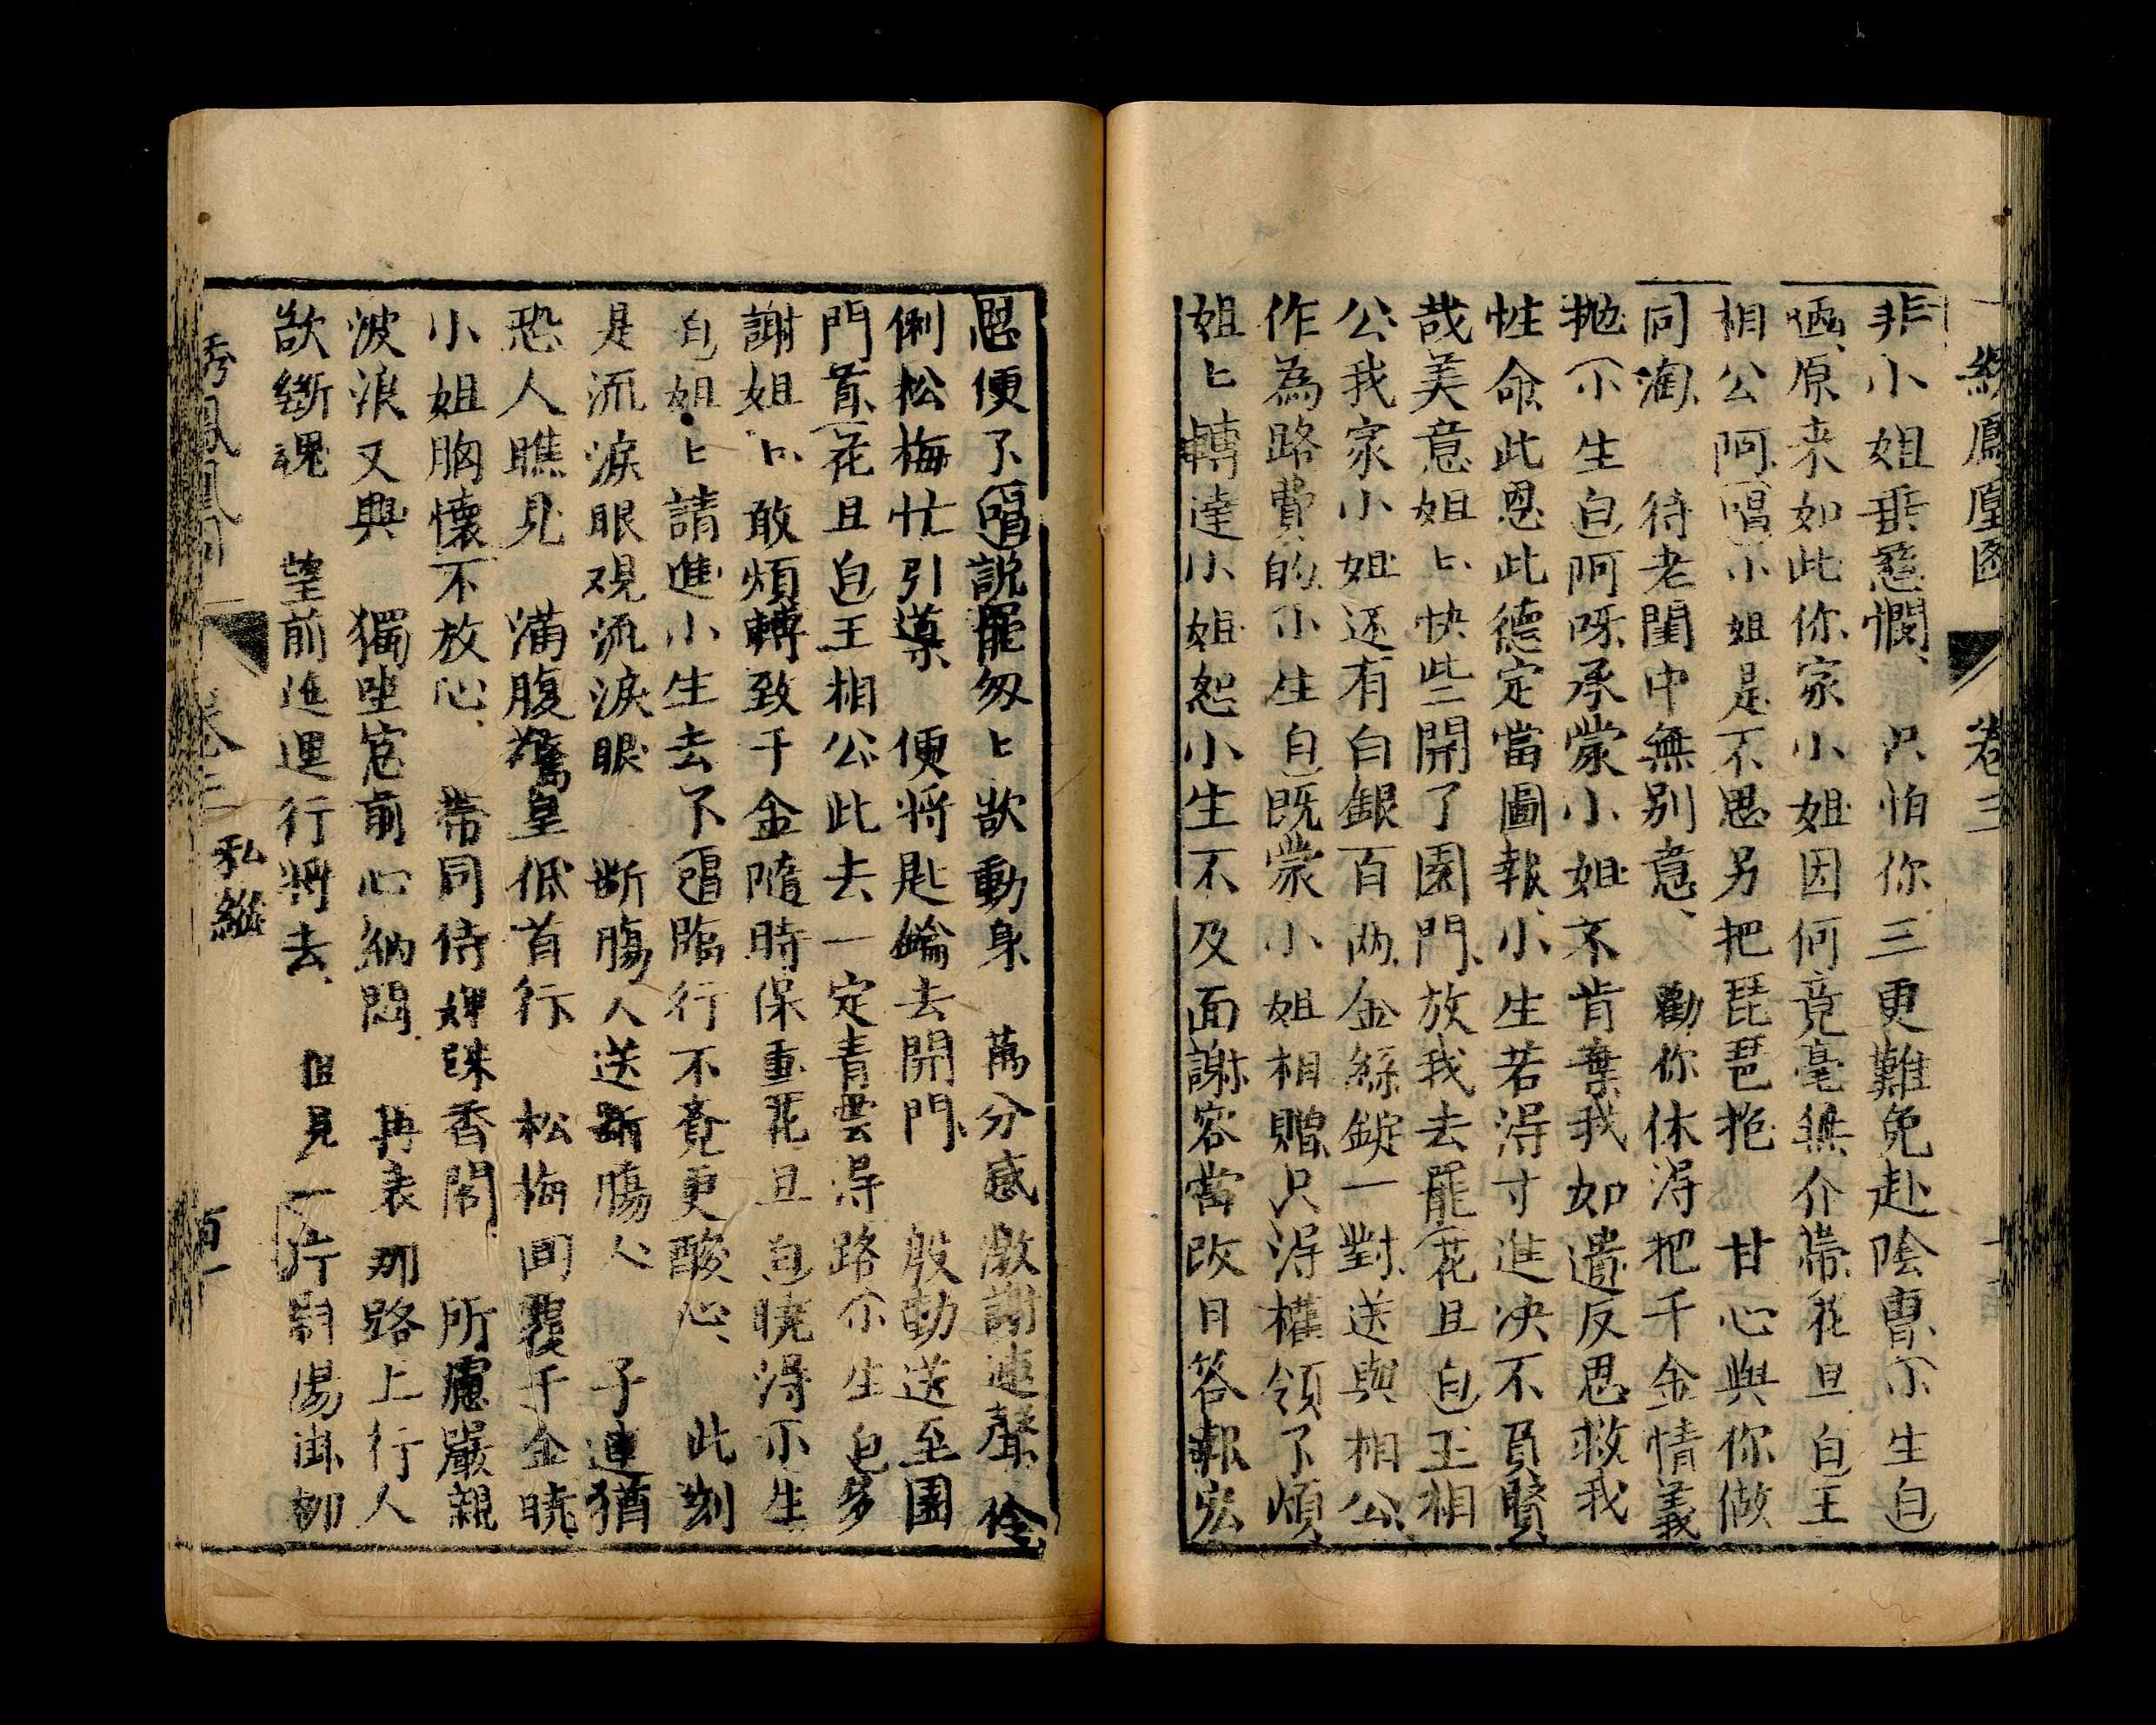 繡鳳凰圖 卷三
非小姐垂慈憫 只怕你三更難免赴陰曹小生白
原来如此你家小姐因何竟毫無介蒂花旦白王
相公阿唱小姐是不思另把琵琶抱 甘心與你做
同淘 待老閨中無别意 勸你休淂把千金情義
抛小生白阿呀承蒙小姐不肯棄我如遺反思救我
性命此恩此德定當圖報小生若淂寸進决不負賢
哉美意姐匕快些開了園門放我去罷花旦白王相
公我家小姐还有白銀百两金絲錠一對送與相公
作為路費的小生白既蒙小姐相贈只淂權領了煩
姐匕轉達小姐恕小生不及面謝容當改日答報宏
恩便了唱說罷匆匕欲動身 萬分感激謝連聲 伶
俐松梅忙引導 便將匙鑰去開門 殷勤送至園
門首花旦白王相公此去一定青雲淂路小生白多
謝姐匕敢煩轉致千金隨時保重花旦白曉淂小生
白姐匕請進小生去了唱臨行不覺更酸心 此刻
是流淚眼观流淚眼 断膓人送断膓人 子連猶
恐人瞧見 滿腹驚皇低首行 松梅囬覆千金曉
小姐胸懷不放心 帶同侍婢誅香閣 所慮嚴親
波浪又興 獨坐窓前心納悶 再表那路上行人
欲斷魂 望前進逕行將去 但見一片斜陽掛柳
秀鳳凰 卷三 私縱